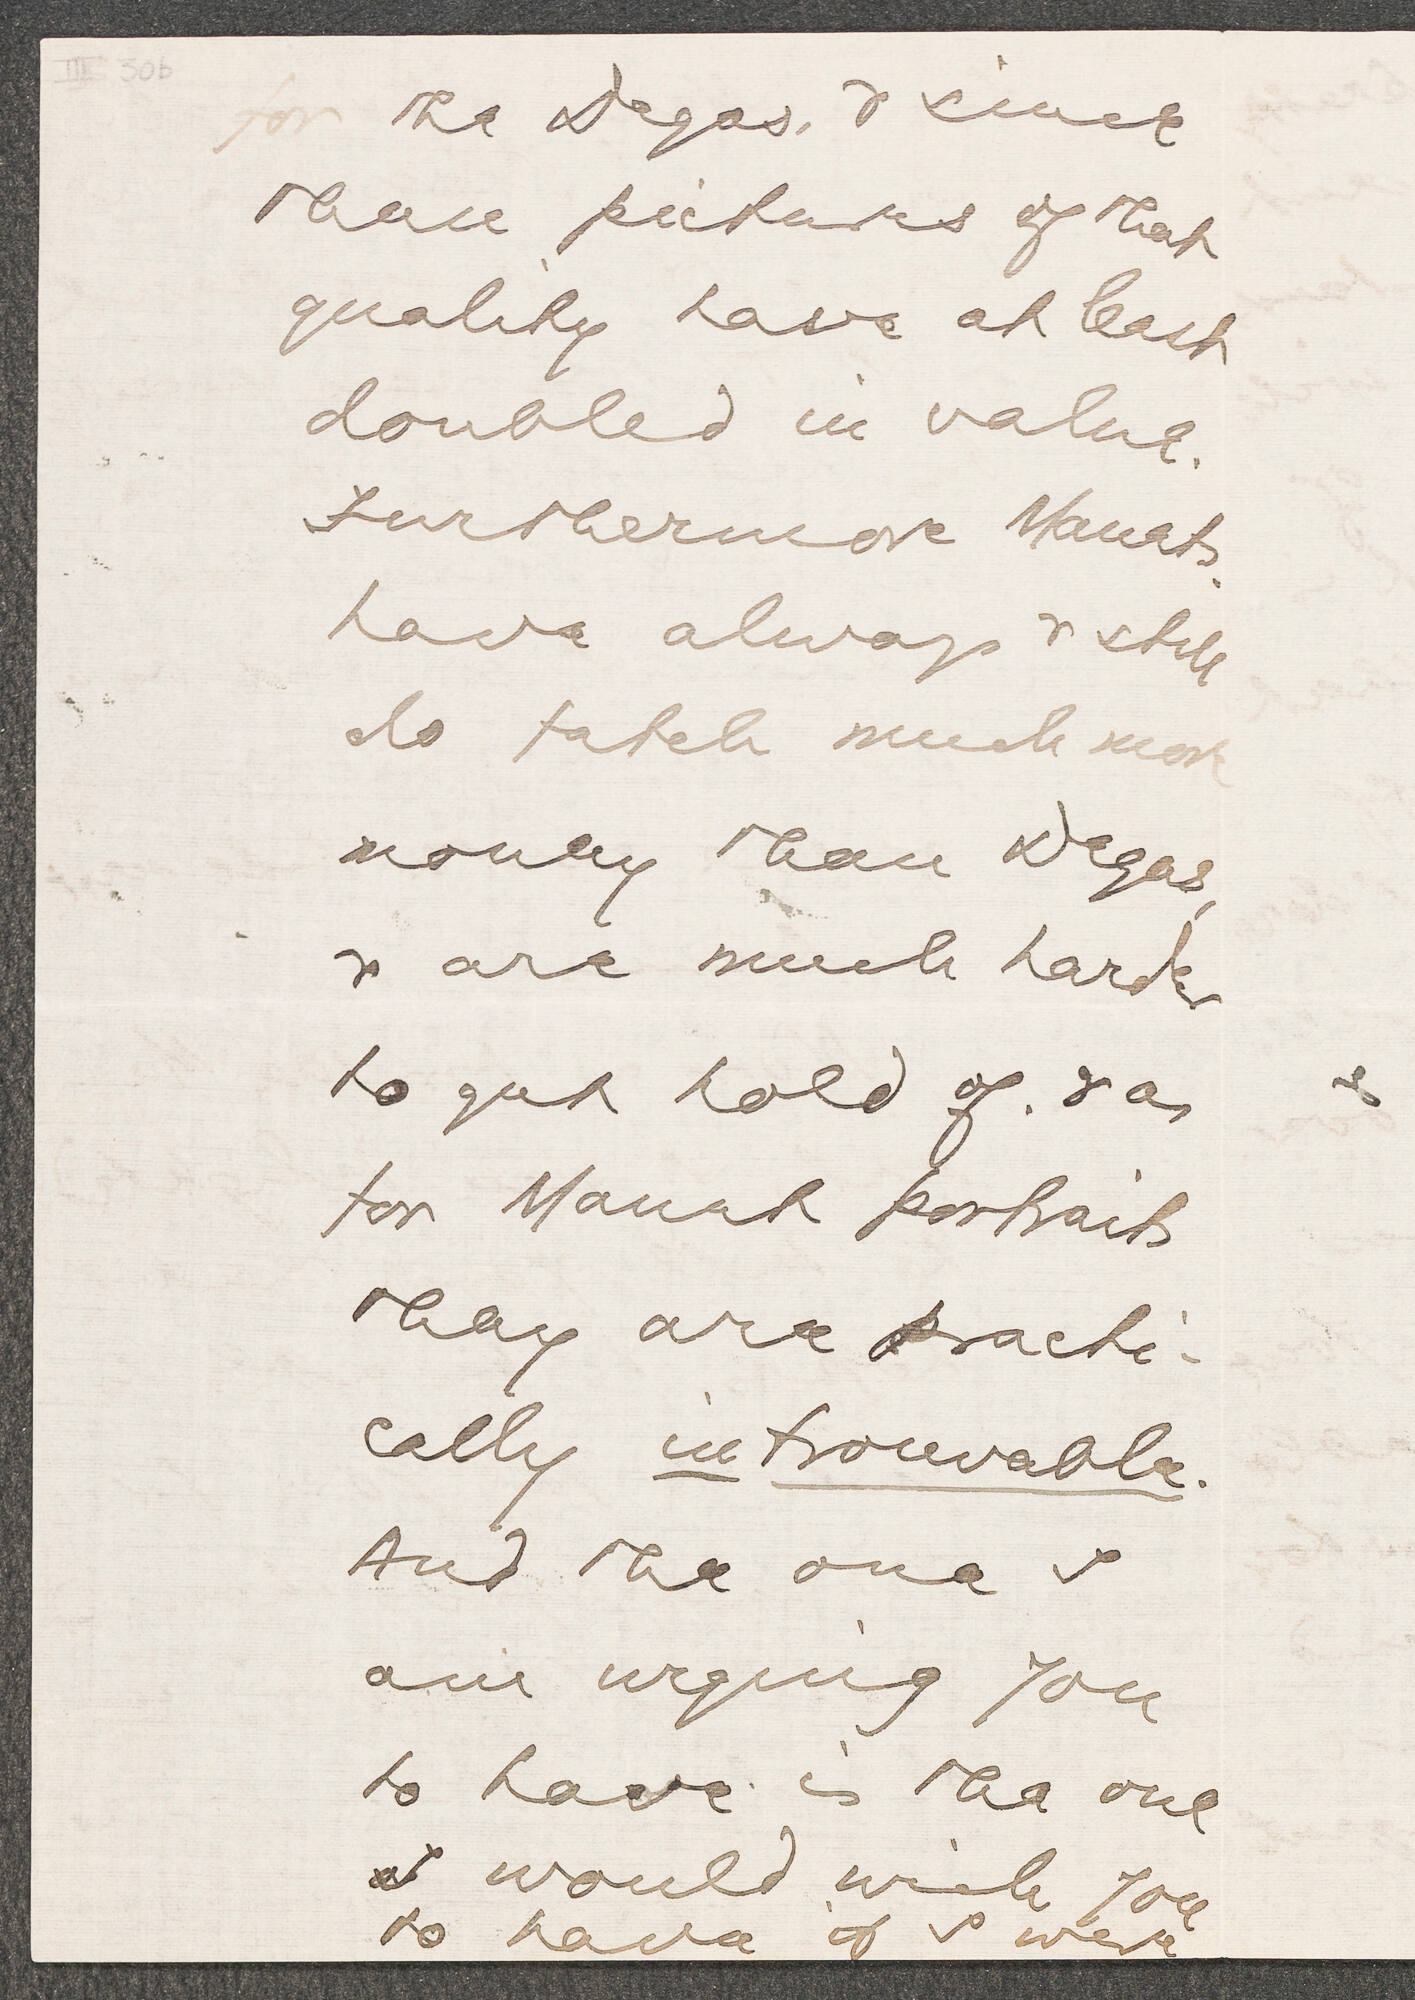 III 30b
for the Degas. & since
then pictures of that
quality have at least
doubled in value.
Furthermore Manets.
have always & still
do fatch much more
money than Degas,
& are much harder
to get hold of. & as
for Manet portraits
they are practi-
cally introuvable.
And the one I
am urging you
to have is the one
I would wish you
to have if I were